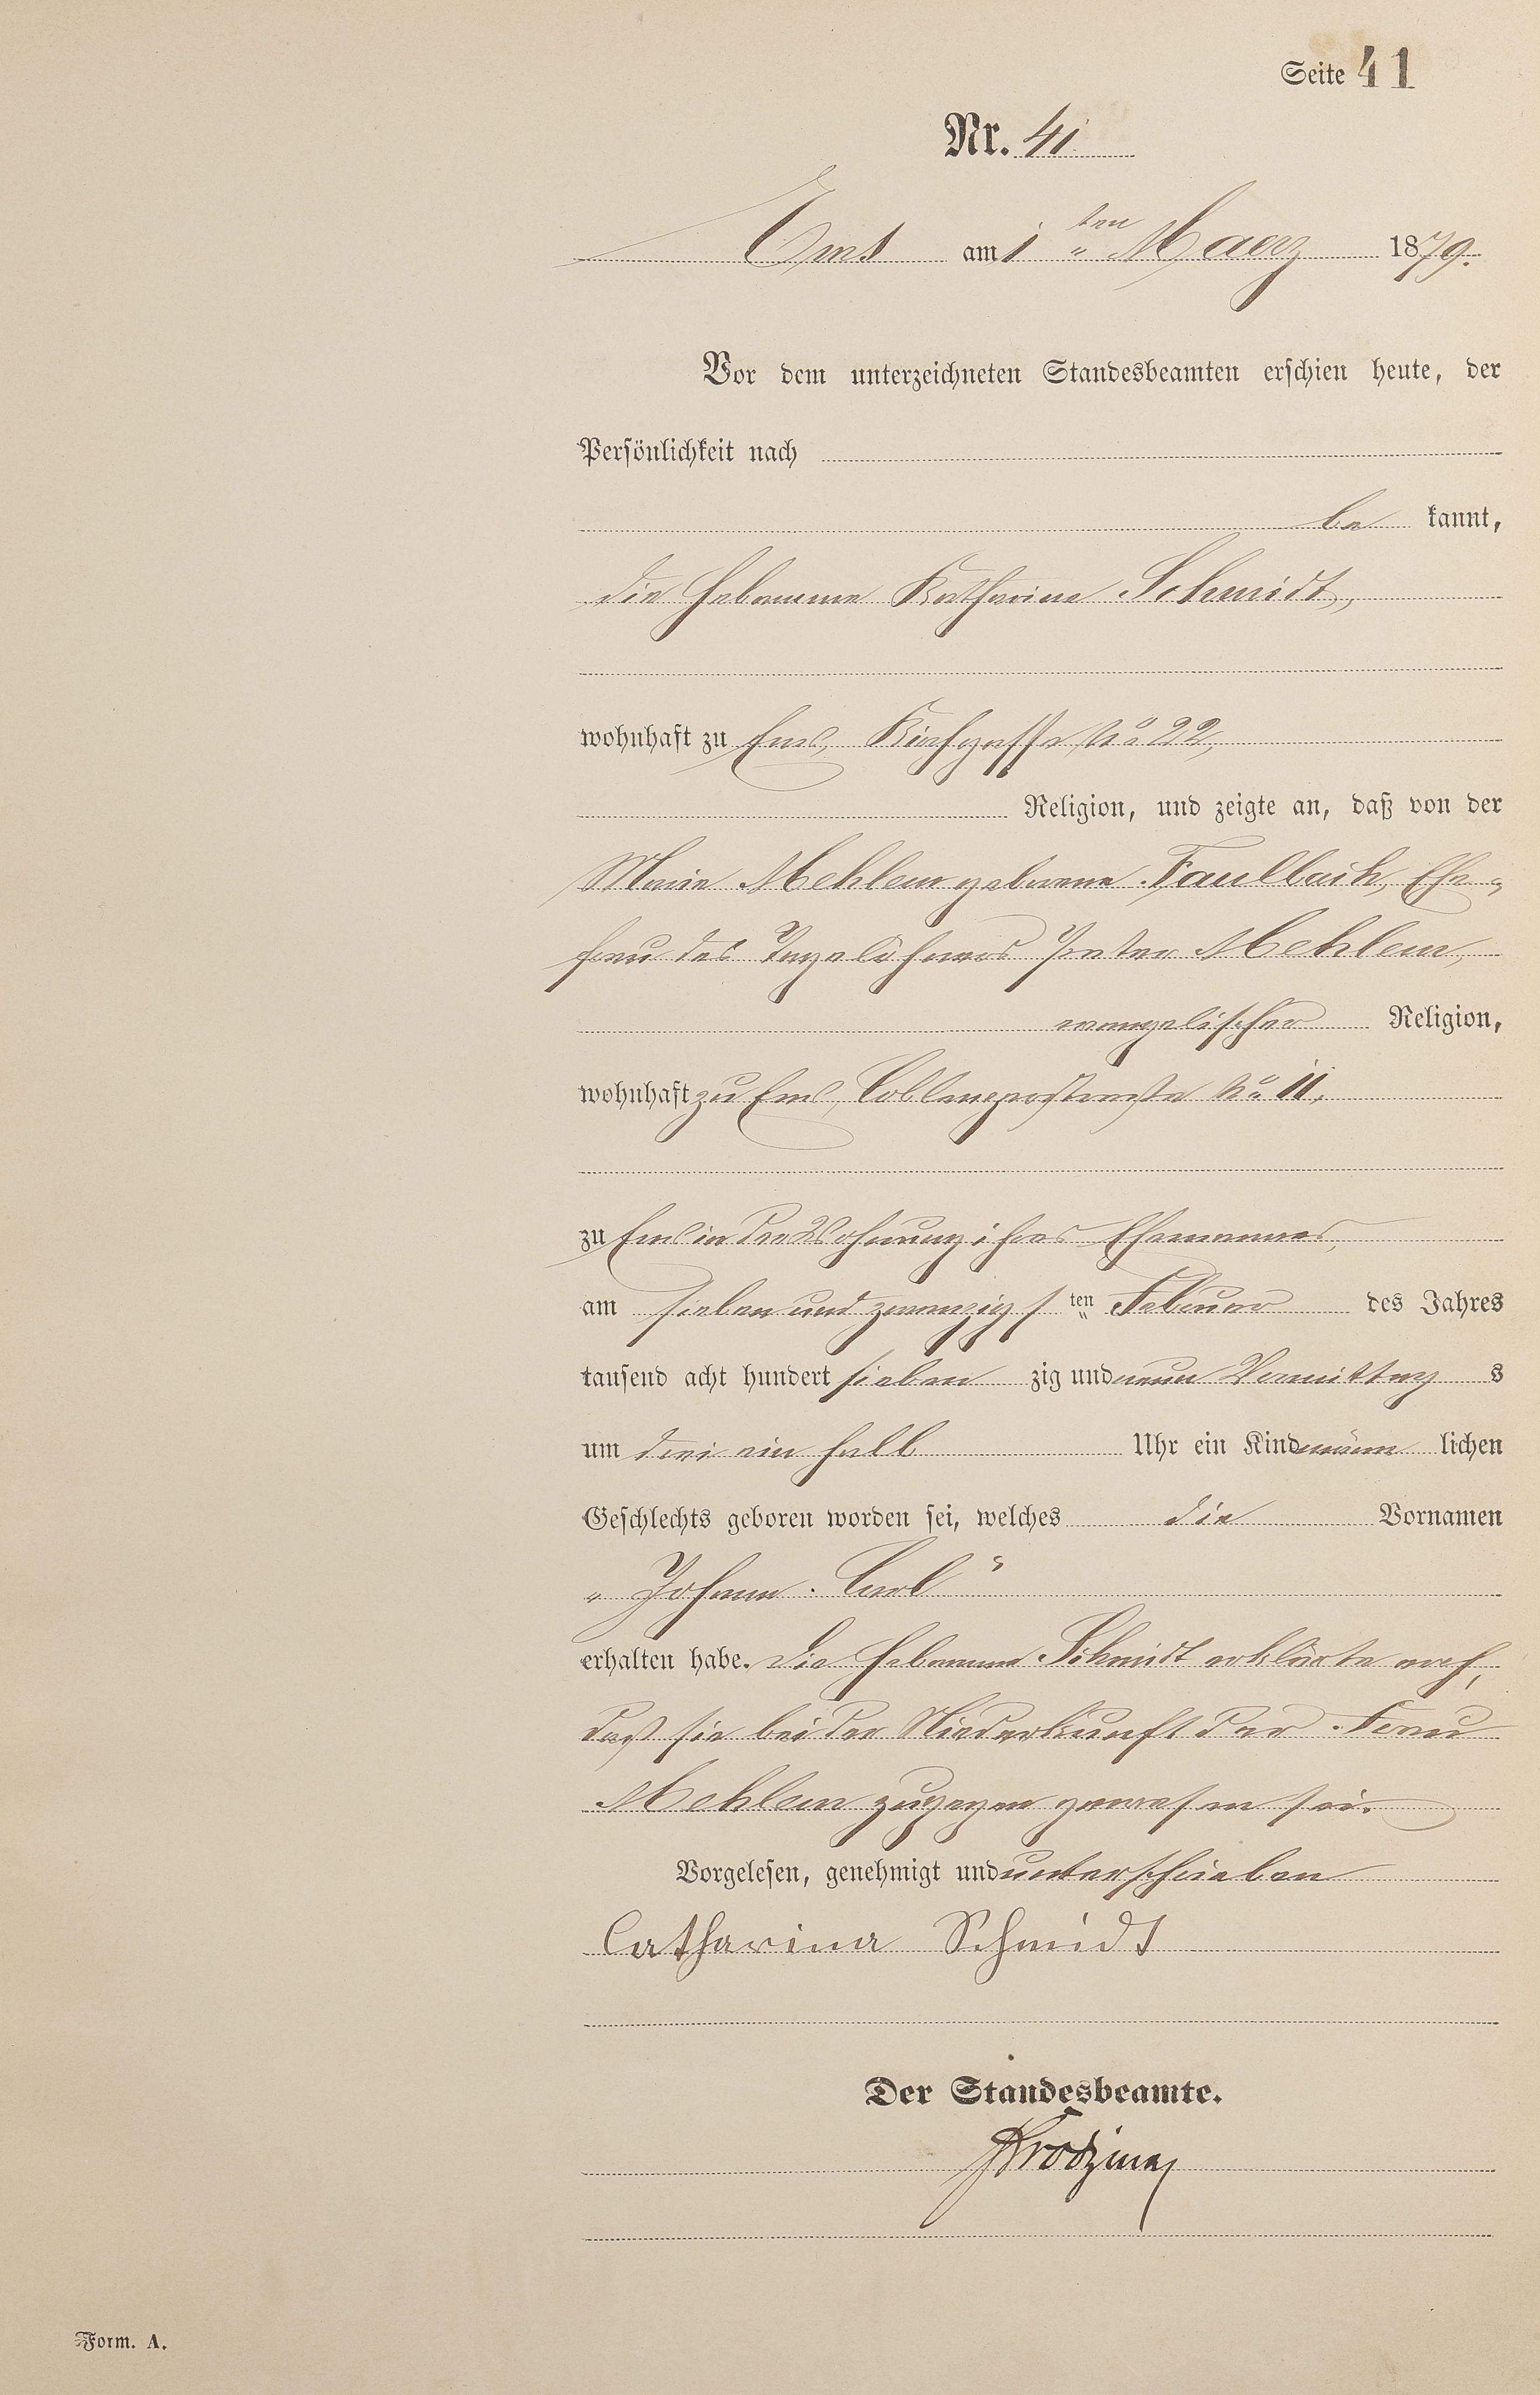 Seite 41
Nr. 41
Ems am 1 ten Maerz 1879.
Vor dem unterzeichneten Standesbeamten erschien heute, der
Persönlichkeit nach
be kannt,
die Hebamme Katharina Schmidt,
wohnhaft zu Ems, Kirchgasse No 22,
Religion, und zeigte an, daß von der
Marie Mehlem geborene Faulbach, Ehe-
frau des Tagelöhners Peter Mehlem,
evangelischer Religion,
wohnhaft zu Ems, Coblenzerstraße No 11,
zu Ems in der Wohnung ihres Ehemannes,
am sieben und zwanzigs ten Februar des Jahres
tausend acht hundert sieben zig und neun Vormittag s
um drei ein halb Uhr ein Kind männ lichen
Geschlechts geboren worden sei, welches die Vornamen
„Johann Carl“
erhalten habe. Die Hebamme Schmidt erklärte noch,
daß sie bei der Niederkunft der Frau
Mehlem zugegen gewesen sei.
Vorgelesen, genehmigt und unterschrieben
Catharina Schmidt
Der Standesbeamte.
Form. A.